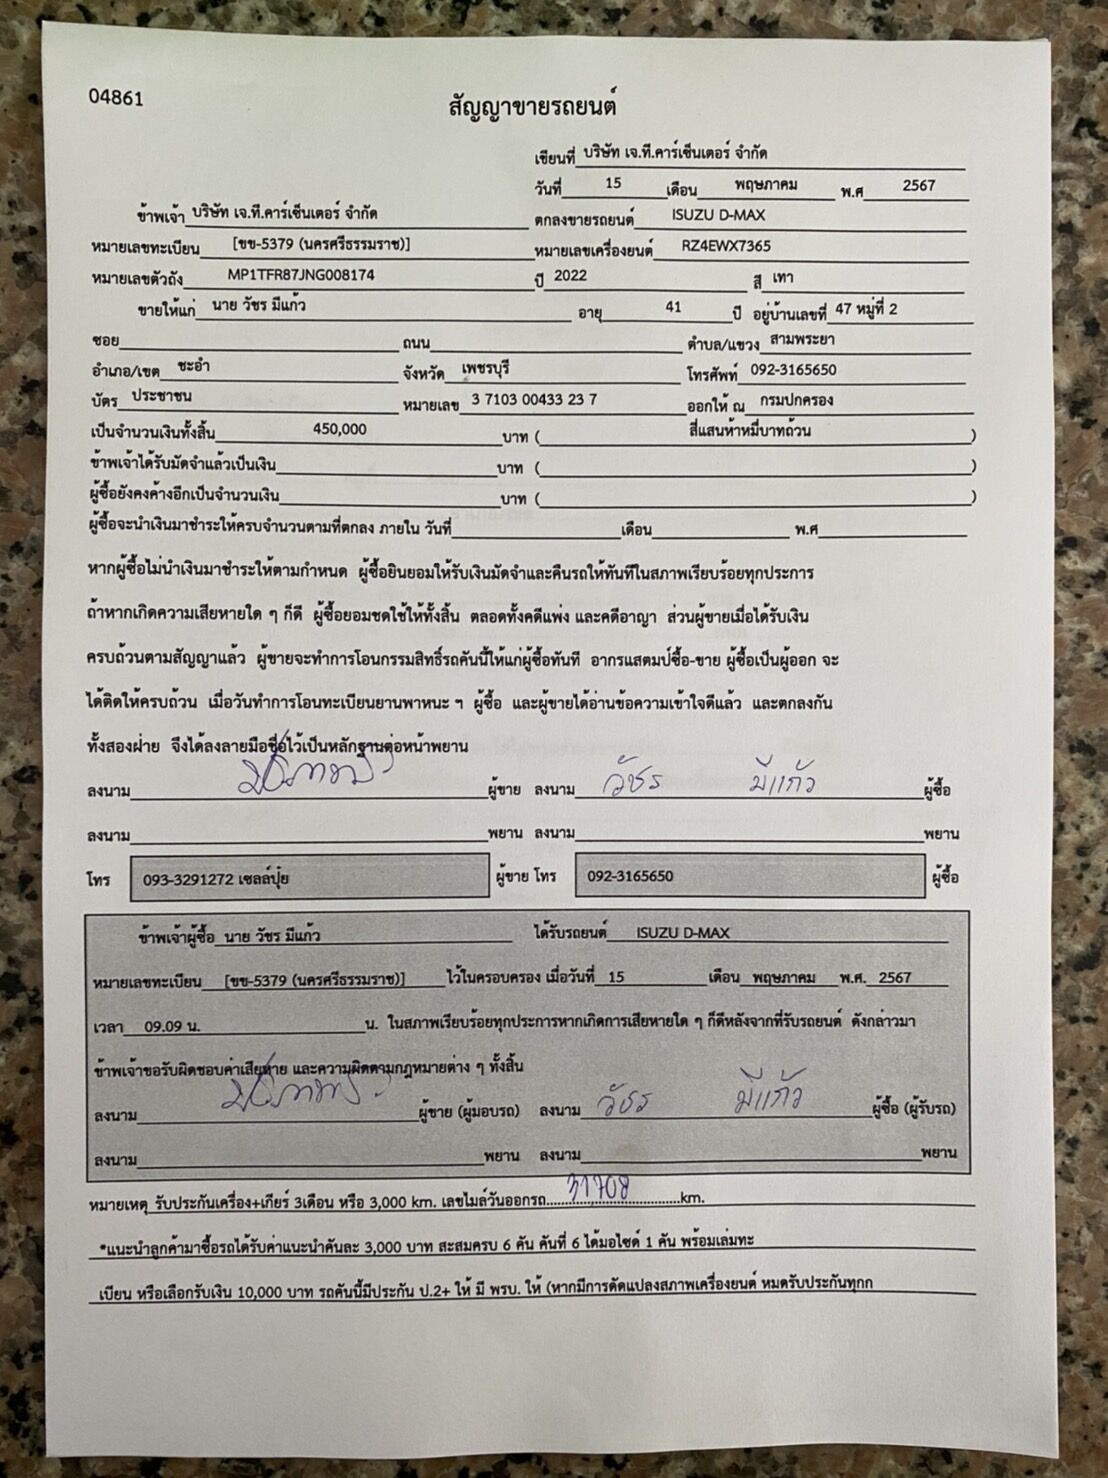 04861
สัญญาขายรถยนต์
เขียนที่ บริษัท เจ.ที.คาร์เซ็นเตอร์ จำกัด
วันที่ 15 เดือน พฤษภาคม พ.ศ 2567
ข้าพเจ้า บริษัท เจ.ที.คาร์เซ็นเตอร์ จำกัด ตกลงขายรถยนต์ ISUZU D-MAX
หมายเลขทะเบียน [ขข-5379 (นครศรีธรรมราช)] หมายเลขเครื่องยนต์ RZ4EWX7365
หมายเลขตัวถัง MP1TFR87JNG008174 ปี 2022 สี เทา
ขายให้แก่ นาย วัชร มีแก้ว อายุ 41 ปี อยู่บ้านเลขที่ 47 หมู่ที่ 2
ซอย ถนน ตำบล/แขวง สามพระยา
อำเภอ/เขต ชะอำ จังหวัด เพชรบุรี โทรศัพท์ 092-3165650
บัตร ประชาชน หมายเลข 3 7103 00433 23 7 ออกให้ ณ กรมปกครอง
เป็นจำนวนเงินทั้งสิ้น 450,000 บาท ( สี่แสนห้าหมื่บาทถ้วน )
ข้าพเจ้าได้รับมัดจำแล้วเป็นเงิน บาท ( )
ผู้ซื้อยังคงค้างอีกเป็นจำนวนเงิน บาท ( )
ผู้ซื้อจะนำเงินมาชำระให้ครบจำนวนตามที่ตกลง ภายใน วันที่ เดือน พ.ศ
หากผู้ซื้อไม่นำเงินมาชำระให้ตามกำหนด ผู้ซื้อยินยอมให้รับเงินมัดจำและคืนรถให้ทันทีในสภาพเรียบร้อยทุกประการ
ถ้าหากเกิดความเสียหายใด ๆ ก็ดี ผู้ซื้อยอมชดใช้ให้ทั้งสิ้น ตลอดทั้งคดีแพ่ง และคดีอาญา ส่วนผู้ขายเมื่อได้รับเงิน
ครบถ้วนตามสัญญาแล้ว ผู้ขายจะทำการโอนกรรมสิทธิ์รถคันนี้ให้แก่ผู้ซื้อทันที อากรแสตมป์ซื้อ-ขาย ผู้ซื้อเป็นผู้ออก จะ
ได้ติดให้ครบถ้วน เมื่อวันทำการโอนทะเบียนยานพาหนะ ฯ ผู้ซื้อ และผู้ขายได้อ่านข้อความเข้าใจดีแล้ว และตกลงกัน
ทั้งสองฝ่าย จึงได้ลงลายมือชื่อไว้เป็นหลักฐานต่อหน้าพยาน
ลงนาม ผู้ขาย ลงนาม วัชร มีแก้ว ผู้ซื้อ
ลงนาม พยาน ลงนาม พยาน
โทร 093-3291272 เซลล์ปุ้ย ผู้ขาย โทร 092-3165650 ผู้ซื้อ
ข้าพเจ้าผู้ซื้อ นาย วัชร มีแก้ว ได้รับรถยนต์ ISUZU D-MAX
หมายเลขทะเบียน [ขข-5379 (นครศรีธรรมราช)] ไว้ในครอบครอง เมื่อวันที่ 15 เดือน พฤษภาคม พ.ศ. 2567
เวลา 09.09 น. น. ในสภาพเรียบร้อยทุกประการหากเกิดการเสียหายใด ๆ ก็ดีหลังจากที่รับรถยนต์ ดังกล่าวมา
ข้าพเจ้าขอรับผิดชอบค่าเสียหาย และความผิดตามกฎหมายต่าง ๆ ทั้งสิ้น
ลงนาม ผู้ขาย (ผู้มอบรถ) ลงนาม วัชร มีแก้ว ผู้ซื้อ (ผู้รับรถ)
ลงนาม พยาน ลงนาม พยาน
หมายเหตุ รับประกันเครื่อง+เกียร์ 3เดือน หรือ 3,000 km. เลขไมล์วันออกรถ 31708 km.
*แนะนำลูกค้ามาซื้อรถได้รับค่าแนะนำคันละ 3,000 บาท สะสมครบ 6 คัน คันที่ 6 ได้มอไซด์ 1 คัน พร้อมเล่มทะ
เบียน หรือเลือกรับเงิน 10,000 บาท รถคันนี้มีประกัน ป.2+ ให้ มี พรบ. ให้ (หากมีการดัดแปลงสภาพเครื่องยนต์ หมดรับประกันทุกก